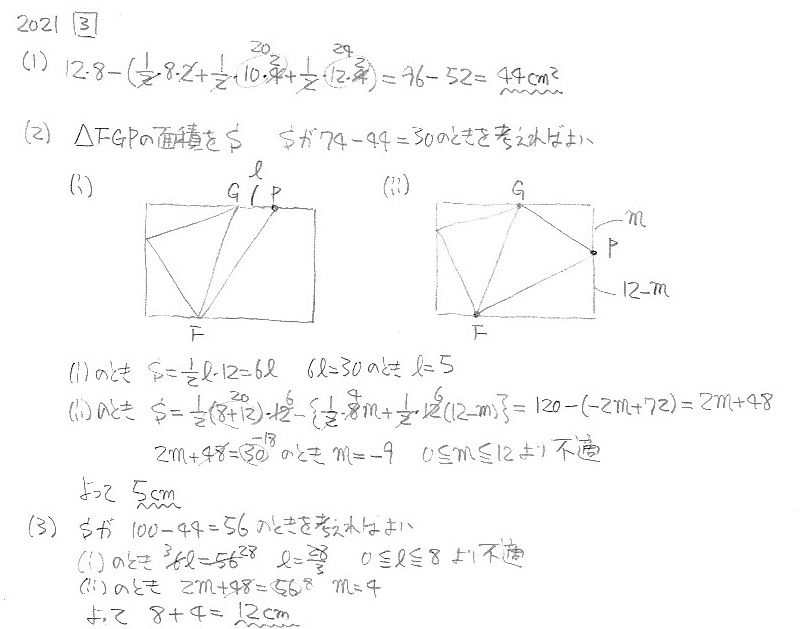 2021 3
(1) 12・8-(1/2・8・2+1/2・10・4+1/2・12・4)=96-52=44cm²
20 2 24 2
(2) △FGPの面積をS Sが74-44=30のときを考えればよい
(i) G l P (ii) G
m
P
12-m
F F
(i)のとき S=1/2 l・12=6l 6l=30のとき l=5
(ii)のとき S=1/2(8+12)・12-{1/2・8m+1/2・12(12-m)}=120-(-2m+72)=2m+48
20 6 4 6
2m+48=30のとき m=-9 0≦m≦12より不適
-18
よって 5cm
(3) Sが 100-44=56 のときを考えればよい
(i)のとき 6l=56 l=28/3 0≦l≦8 より不適
3 28
(ii)のとき 2m+48=56 m=4
8
よって 8+4=12cm